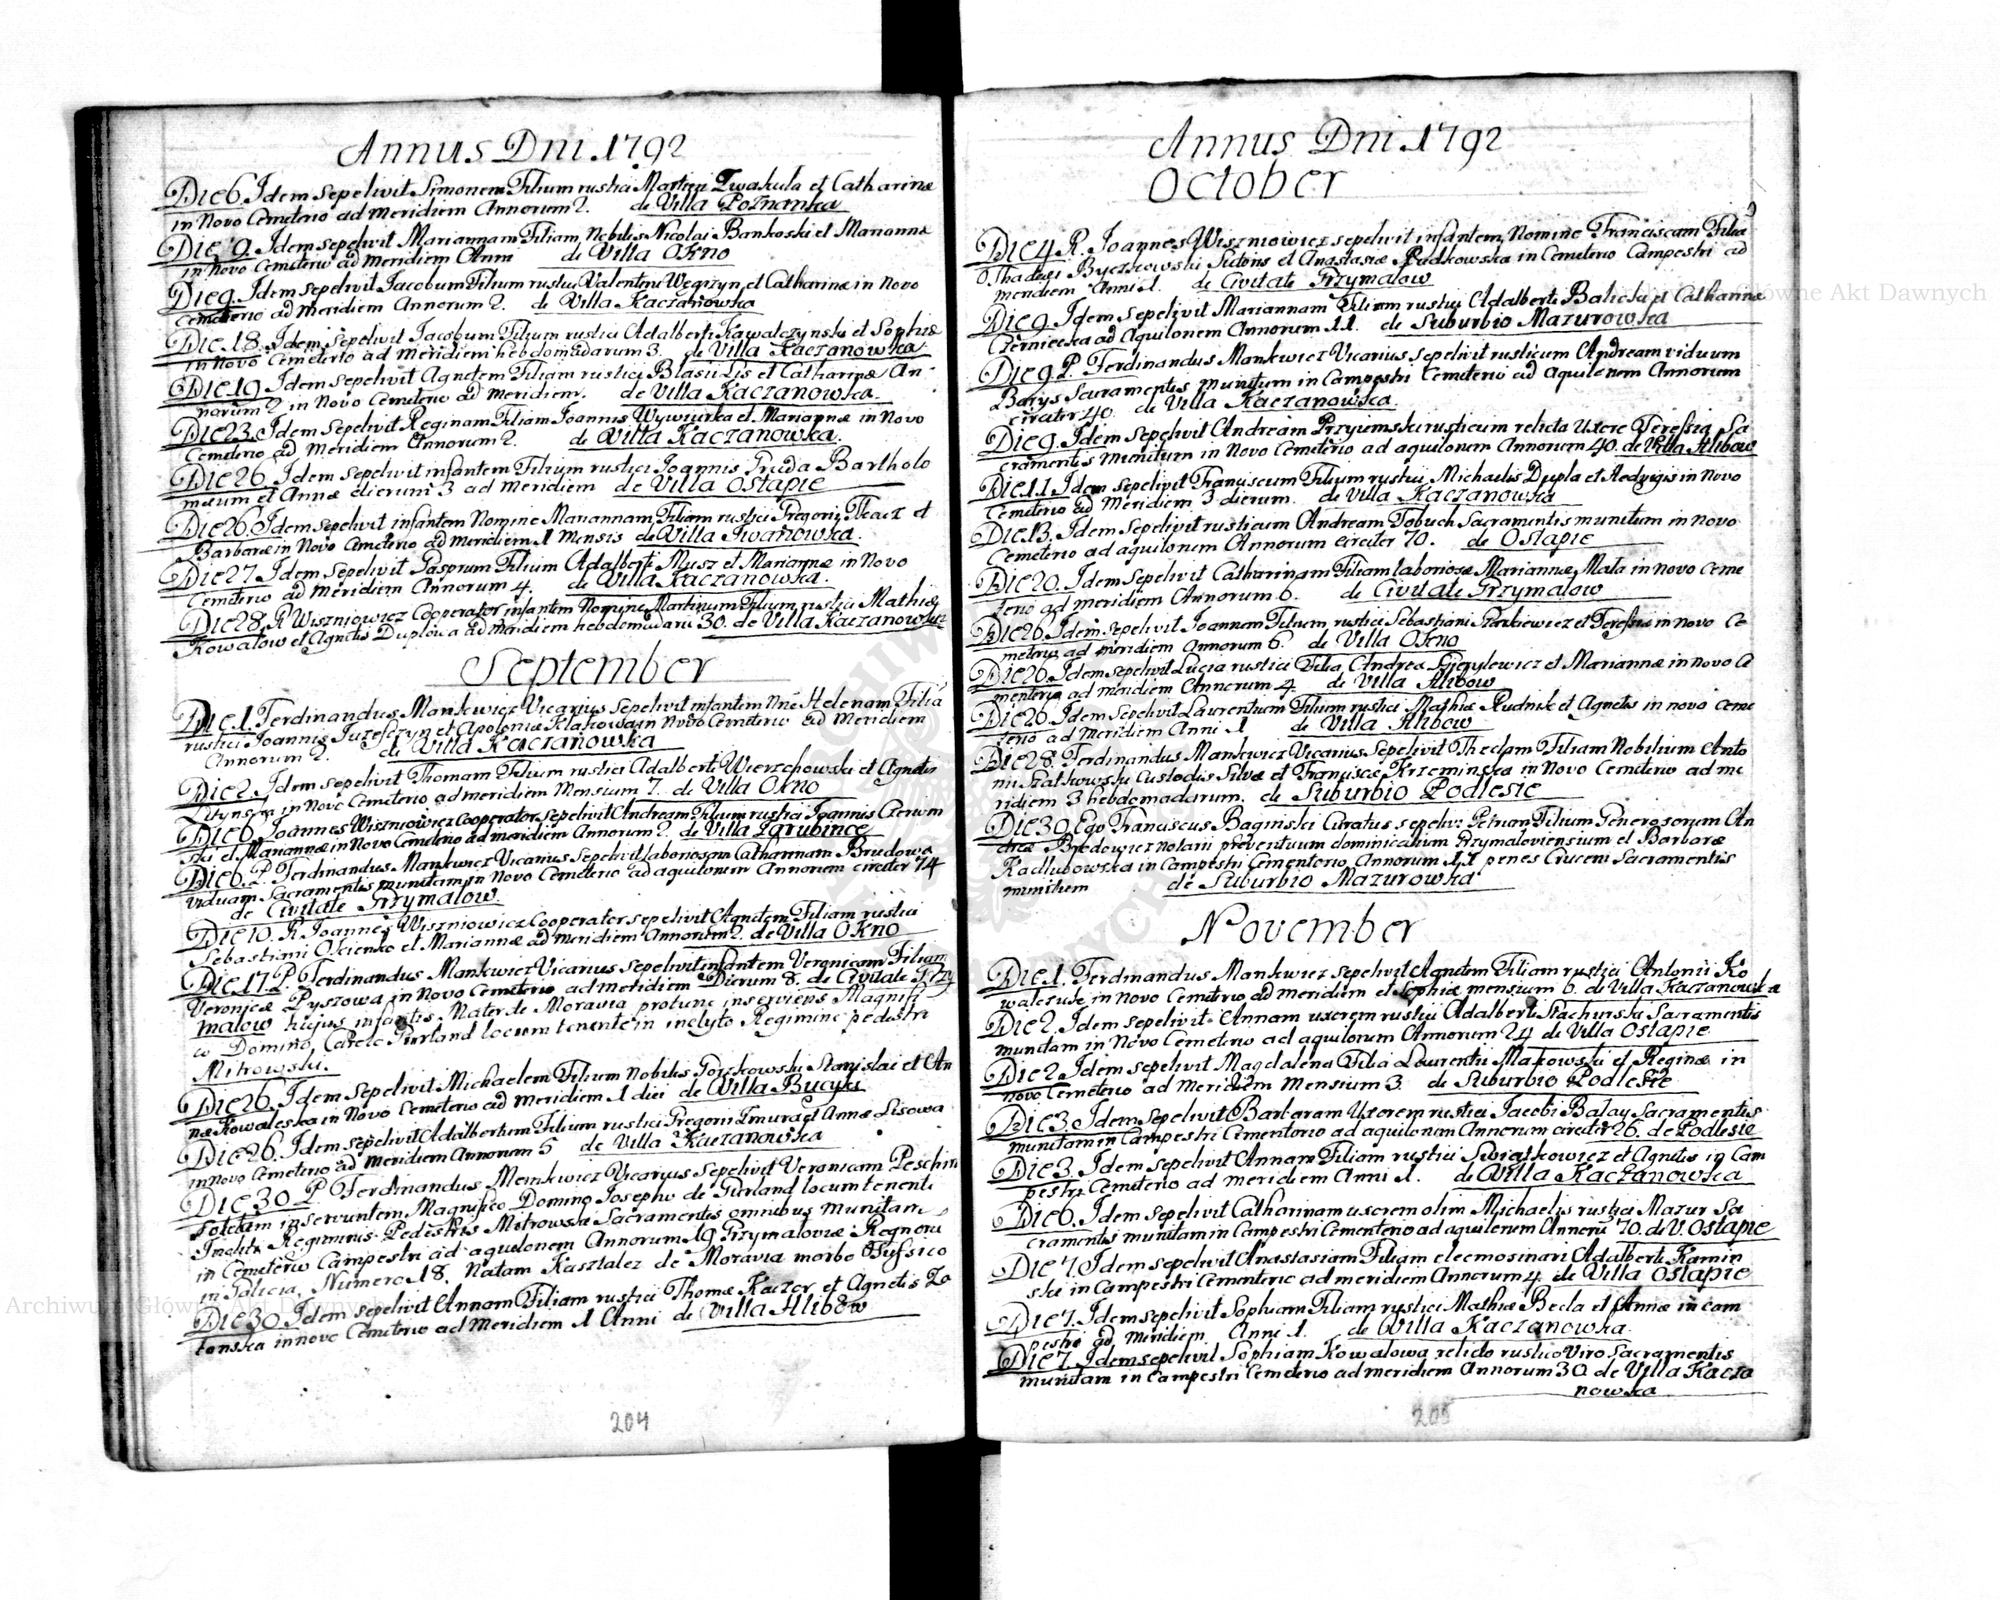 Annus Dni 1792
Die 6. Idem sepelivit Simonem Filium rustici Martini Iwakula et Catharinæ
in Novo Cemeterio ad meridiem Annorum 2. de Villa Poznanka
Die 9. Idem sepelivit Mariannam Filiam Nobilis Nicolai Bankoski et Mariannæ
in Novo Cemeterio ad meridiem Anni de Villa Okno
Die 9. Idem sepelivit Jacobum Filium rustici Valentini Węgrzyn et Catharinæ in Novo
Cemeterio ad meridiem Annorum 2. de Villa Kaczanowka
Die 18. Idem sepelivit Jacobum Filium rustici Adalberti Kawalczynski et Sophiæ
in Novo Cemeterio ad meridiem hebdomadarum 3. de Villa Kaczanowka
Die 19. Idem sepelivit Agnetem Filiam rustici Blasii Lis et Catharinæ An-
norum 2 in Novo Cemeterio ad meridiem. de Villa Kaczanowka.
Die 23. Idem sepelivit Reginam Filiam Joannis Wywiurka et Mariannæ in Novo
Cemeterio ad Meridiem Annorum 2. de Villa Kaczanowka.
Die 26 Idem sepelivit infantem Filium rustici Joannis Gruda Bartholo
mæum et Annæ dierum 3 ad Meridiem de Villa Ostapie
Die 26. Idem sepelivit infantem Nomine Mariannam Filiam rustici Gregorij Tkacz et
Barbaræ in Novo Cemeterio ad meridiem 1 Mensis de Villa Iwanowka.
Die 27 Idem sepelivit Gasprum Filium Adalberti Musz et Mariannæ in Novo
Cemeterio ad Meridiem Annorum 4. de Villa Kaczanowka.
Die 28. R Wiszniowicz Cooperator infantem Nomine Martinum Filium rustici Mathiæ
Kowalow et Agnetis Duplowa ad meridiem hebdomadaru 30. de Villa Kaczanowka
September
Die 1. Ferdinandus Mankwicz Vicarius sepelivit infantem Nne Helenam Filia
rustici Joannis Juzefczyn et Apoloniæ Klakowa in Novo Cemeterio ad Meridiem
Annorum 2. de Villa Kaczanowka
Die 2. Idem sepelivit Thomam Filium rustici Adalberti Wierzchowski et Agnetis
in Novo Cemeterio ad meridiem Mensium 7. de Villa Okno
Die 6 Joannes Wiszniowicz Cooperator sepelivit Andream Filium rustici Joannis Czerwin
ski et Mariannæ in Novo Cemeterio ad meridiem Annorum 2. de Villa Zarubince
Die 6. P. Ferdinandus Mankwicz Vicarius Sepelivit laboriosam Catharinam Brudowa
viduam Sacramentis munitam in Novo Cemeterio ad aquilonem Annorum circiter 74
de Civitate Grzymalow.
Die 10. R Joannes Wiszniowicz Cooperator sepelivit Agnetem Filiam rustici
Sebastiani Okienko et Mariannæ ad meridiem Annorum 2. de Villa Okno
Die 17. P. Ferdinandus Mankwicz Vicarius sepelivit infantem Veronicam Filiam
Veronicæ Pyszowa in Novo Cemeterio ad meridiem Dierum 8. de Civitate Grzy
malow hujus infantis Mater de Moravia protunc inserviens Magnifi
co Domino Carolo Gurland locum tenente in inclyto Regimine pedestri
Mitrowski.
Die 26. Idem sepelivit Michaelem Filium Nobilis Gorzkowski Stanislai et An
næ Kowaleska in Novo Cemeterio ad Meridiem 1 diei de Villa Bucyki
Die 26. Idem sepelivit Adalbertum Filium rustici Gregorii Zmura et Annæ Lisowa
in Novo Cemeterio ad Meridiem Annorum 5 de Villa Kaczanowka
Die 30 P Ferdinandus Menkwicz Vicaryus Sepelivit Veronicam Peschin
solutam inservientem Magnifico Domino Josepho de Gurland locumtenenti
Incliti Regiminis Pedestris Mitrowski Sacramentis omnibus munitam
in Cemeterio Campestri ad aquilonem Annorum 19 Grzymaloviæ Regnoru
in Galicia, Numero 18. Natam Kasztalez de Moravia morbo Tussico
Die 30 Idem sepelivit Annam Filiam rustici Thomæ Kaczor et Agnetis Za
tonska in novo Cemeterio ad Meridiem 1 Anni de Villa Hlibow
204
Annus Dni 1792
October
Die 4 R. Joannes Wiszniowicz sepelivit infantem Nomine Franciscam Filia
Thadei Byczkowski Sutoris et Anastasiæ Rudkowska in Cemeterio Campestri ad
meridiem Anni 1. de Civitate Grzymalow
Die 9 Idem sepelivit Mariannam Filiam rustici Adalberti Balicki et Catharinæ
Czerniecka ad Aquilonem Annorum 11. de Suburbio Mazurowka
Die 9 P. Ferdinandus Mankwicz Vicarius sepelivit rusticum Andream viduum
Barys Sacramentis munitum in Campestri Cemeterio ad aquilonem Annorum
circiter 40. de Villa Kaczanowka.
Die 9. Idem sepelivit Andream Przyiemski rusticum relicta Uxore Teressia Sa
cramentis munitum in Novo Cemeterio ad aquilonem Annorum 40. de Villa Hlibow
Die 11 Idem sepelivit Franciscum Filium rustici Michaelis Dupla et Hedvigis in Novo
Cemeterio ad Meridiem 3 dierum. de Villa Kaczanowka
Die 13. Idem sepelivit rusticum Andream Tobuch Sacramentis munitum in Novo
Cemeterio ad aquilonem Annorum circiter 70. de Ostapie
Die 20. Idem sepelivit Catharinam Filiam laboriosæ Mariannæ Mala in Novo Ceme
terio ad meridiem Annorum 6. de Civitate Grzymalow
Die 26 Idem sepelivit Joannam Filium rustici Sebastiani Starkiewicz et Teressiæ in novo Ce
meterio ad meridiem Annorum 6. de Villa Okno
Die 26. Idem sepelivit Lucia rustici Filia Andrea Gierylewicz et Mariannæ in novo Ce
menterio ad meridiem Annorum 4. de Villa Hlibow
Die 26 Idem sepelivit Laurentium Filium rustici Mathiæ Rudnik et Agnetis in novo Ceme
terio ad meridiem Anni 1 de Villa Hlibow
Die 28. Ferdinandus Mankwicz Vicarius Sepelivit Theclam Filiam Nobilium Anto
nii Szatkowski Custodis Silvæ et Francisce Krzeminska in Novo Cemeterio ad me
ridiem 3 hebdomadarum. de Suburbio Podlesie
Die 30 Ego Franciscus Baginski Curatus sepeliv: Petrum Filium Generosorum An
dreæ Bredowicz notarii preventuum dominicalium Grzymaloviensium et Barbaræ
Kadlubowska in Campestri Cementorio, Annorum 11 penes Crucem Sacramentis
munitum de Suburbio Mazurowka
November
Die 1. Ferdinandus Mankwicz sepelivit Agnetem Filiam rustici Antonii Ko
walczuk in Novo Cemeterio ad meridiem et Sophiæ mensium 6. de Villa Kaczanowka
Die 2. Idem sepelivit Annam uxorem rustici Adalberti Stachurski Sacramentis
munitam in Novo Cemeterio ad aquilonem Annorum 24 de Villa Ostapie
Die 2 Idem sepelivit Magdalena Filia Laurentii Makowski et Reginæ in
novo Cemeterio ad Meridiem Mensium 3 de Suburbio Podlesie
Die 3. Idem sepelivit Barbaram Uxorem rustici Jacobi Balay Sacramentis
munitam in Campestri Cementorio ad aquilonem Annorum circiter 26. de Podlesie
Die 3. Idem sepelivit Annam Filiam rustici Swiątkowicz et Agnetis in Cam
pestri Cemeterio ad meridiem Anni 1. de Villa Kaczanowka
Die 6. Idem sepelivit Catharinam uxorem olim Michaelis rustici Mazur Sa
cramentis munitam in Campestri Cementerio ad aquilonem Annoru 70. de V. Ostapie
Die 7. Idem sepelivit Anastasiam Filiam elecmosinari Adalberti Kamin
ski in Campestri Cementerio ad meridiem Annorum 4. de Villa Ostapie
Die 7. Idem sepelivit Sophiam Filiam rustici Mathiæ Becla et Annæ in cam
pestri ad meridiem Anni 1. de Villa Kaczanowka.
Die 7. Idem sepelivit Sophiam Kowalowa relicto rustico Viro Sacramentis
munitam in Campestri Cemeterio ad meridiem Annorum 30 de Villa Kacza
nowka
205
Archiwum Główne Akt Dawnych
Archiwum Główne Akt Dawnych